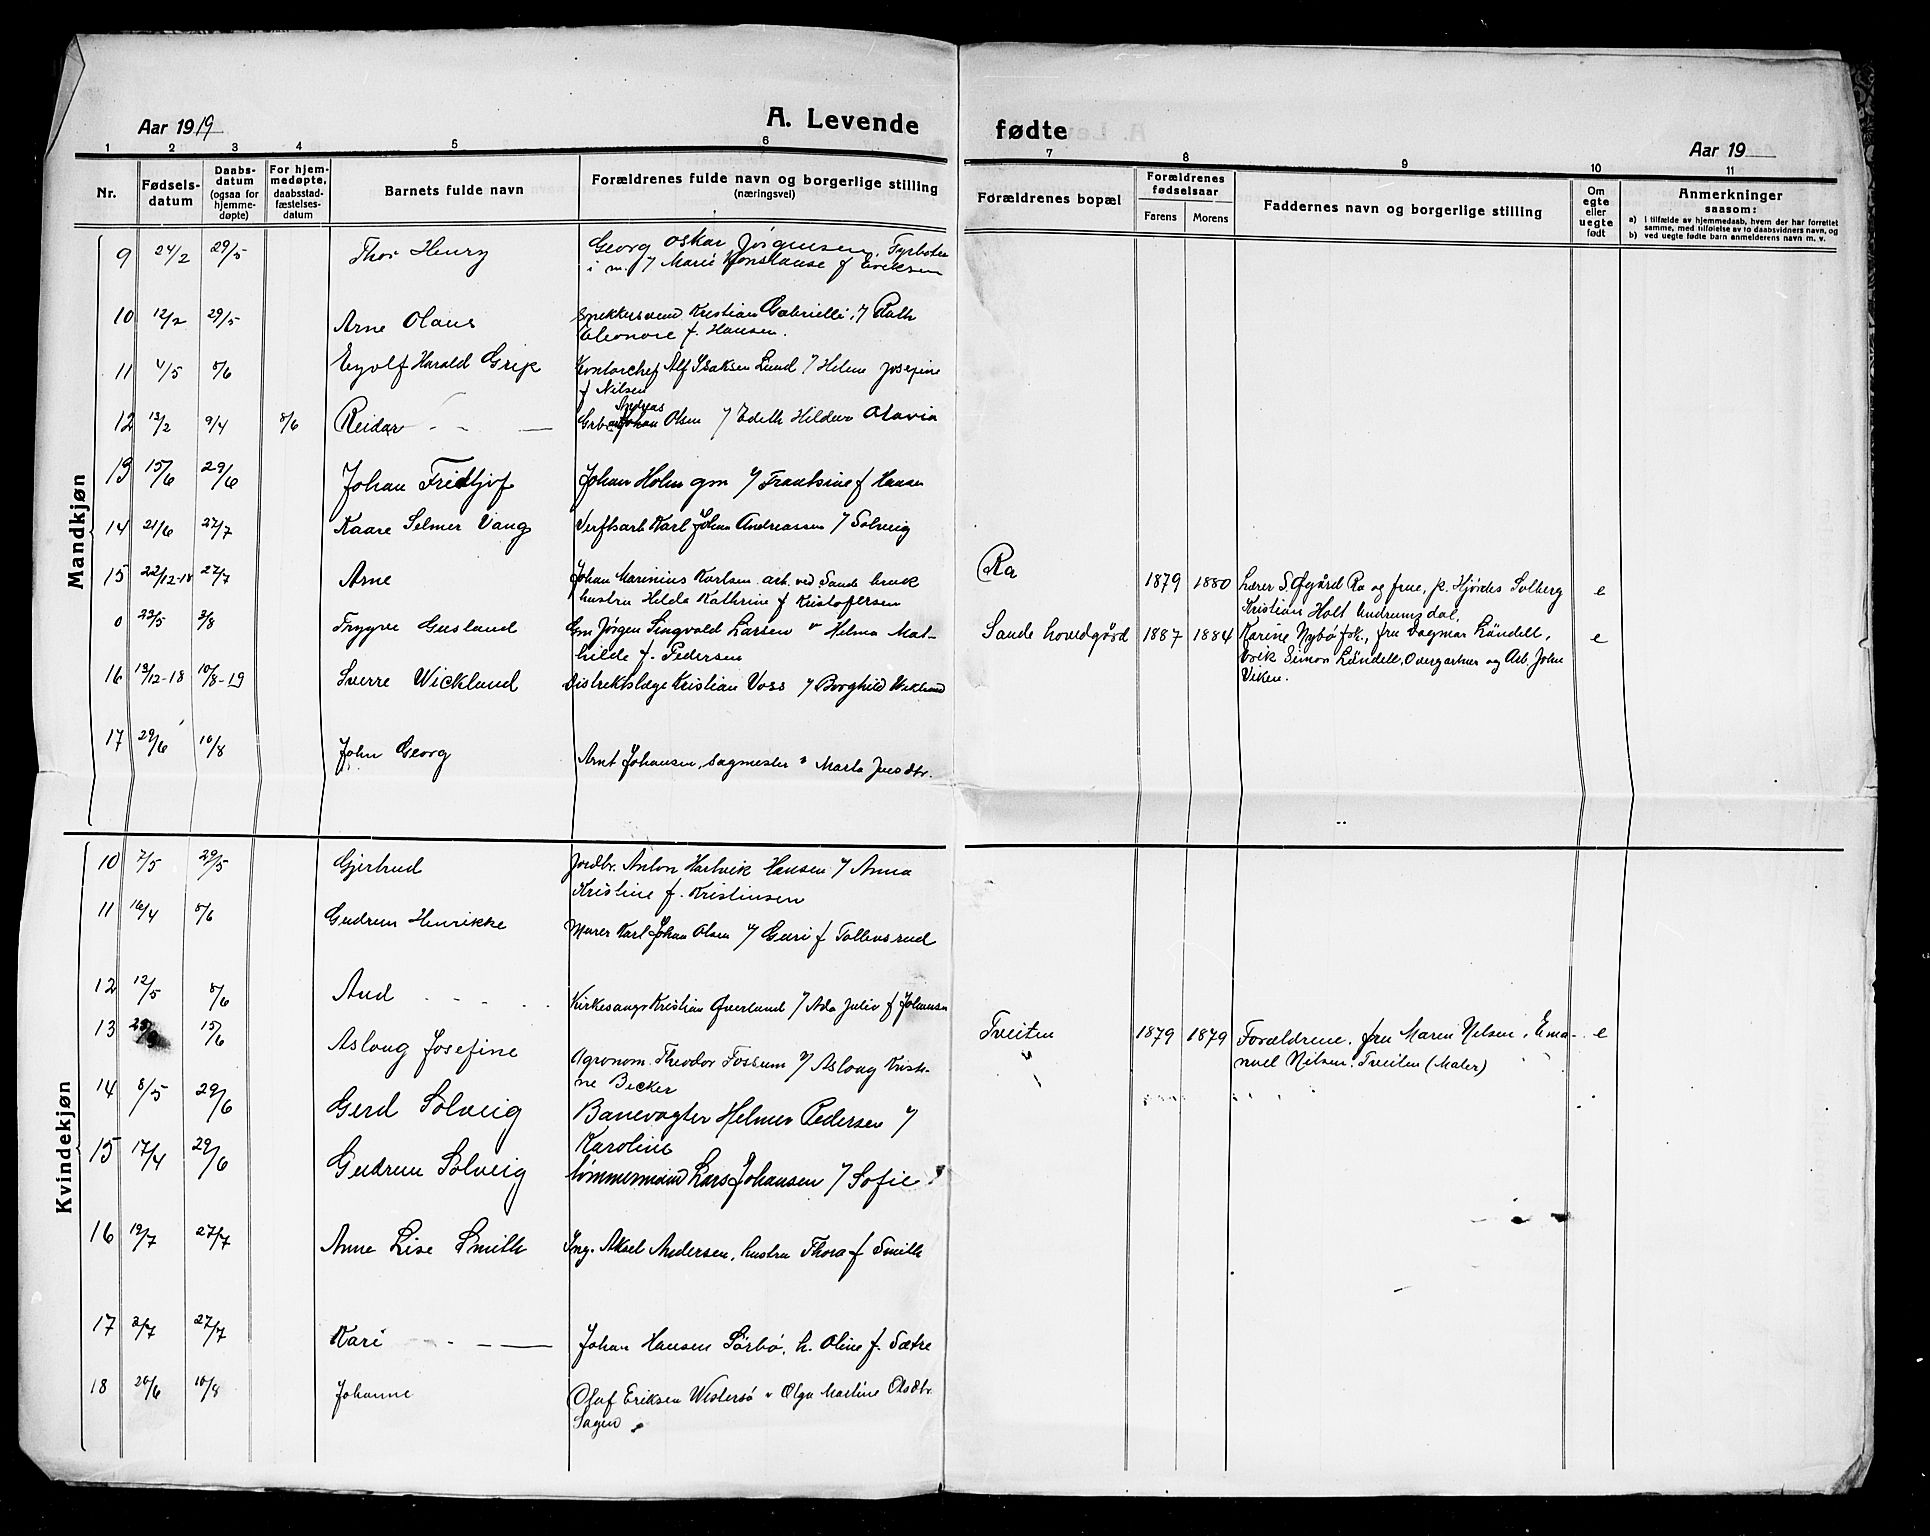 Aar 1919
A. Levende
fødte
Aar 19
1 2 3 4 5 6 7 8 9 10 11
Nr.
Fødsels-
datum
Daabs-
datum
(ogsaa for
hjemme-
døpte)
For hjem-
medøpte,
daabsstad-
fæstelses-
datum
Barnets fulde navn
Forældrenes fulde navn og borgerlige stilling
(næringsvei)
Forældrenes bopæl
Forældrenes
fødselsaar
Farens Morens
Faddernes navn og borgerlige stilling
Om
egte
eller
uegte
født
Anmerkninger
saasom:
a) i tilfælde av hjemmedaab, hvem der har forrettet
samme, med tilføielse av to daabsvidners navn, og
b) ved uegte fødte barn anmelderens navn m. v.
Mandkjøn
9 24/2 29/5 Thor Henry Georg Oskar Jørgensen, Fyrbøter
i m. / Marie Konstanse f Eriksen
10 12/2 29/5 Arne Olaus Kristian Gabrielli, / Ruth
Eleonore f. Hansen.
11 4/5 8/6 Eyolf Harald Grip Kontorchef Alf Isaksen Lund / Helene Josefine
f Nilsen
Andreas
12 13/2 9/4 8/6 Reidar Grbarb Johan Olsen / Edith Hildur Otavia
13 15/6 29/6 Johan Fridtjof Johan Holm gm / Frantsine f Hansen
14 21/6 27/7 Kaare Selmer Vang Verftsarb Karl Johan Andreassen / Solveig
15 22/12-18 27/7 Arne Johan Marinius Karlsen arb. ved Sande bruk
hustru Hilda Kathrine f Kristofersen
Ra 1879 1880 Lærer S. Øygård Ra og frue, p. Hjørdis Solberg e
Kristian Holt Undrumsdal,
0 23/5 3/8 Trygve Gusland Gm Jørgen Singvald Larsen " Helma Mat-
hilde f. Pedersen
Sande hovedgård 1887 1884 Karine Nybø frk., fru Dagmar Lündell, e
Erik Simon Lündell, Overgartner og Arb. John
Viken.
16 19/12-18 10/8-19 Sverre Wicklund Distriktslæge Kristian Voss / Borghild Wiklund
17 29/6 10/8 John Georg Arnt Johansen, sagmester " Marta Jensdtr.
Kvindekjøn
10 7/5 29/5 Gjertrud Jordbr. Anton Hartvik Hansen / Anna
Kristine f. Kristinsen
11 16/4 8/6 Gudrun Henrikke Murer Karl Johan Olsen / Guri f Tollevsrud
12 12/5 8/6 Aud Kirkesangr Kristian Øverlund / Ada Juliv f Johansen
13 15/6 Aslaug Josefine Agronom. Theodor Fossum / Aslaug Kristi-
ne Becker
Tveiten 1879 1879 Forældrene, fru Maren Nilsen, Ema- e
nuel Nilsen. Tveiten (Maler)
14 8/5 29/6 Gerd Solveig Banevogter Helmer Pedersen /
Karoline
15 17/4 29/6 Gudrun Solveig tømmermand Lars Johansen / Sofie
16 19/7 27/7 Anne Lise Smith Ing. Aksel Andersen, hustru Thora f Smith
17 2/7 27/7 Kari Johan Hansen Sørbø, h. Oline f. Sætre
18 20/6 10/8 Johanne Oluf Eriksen Westersø " Olga Martine Olsdtr.
Sagen